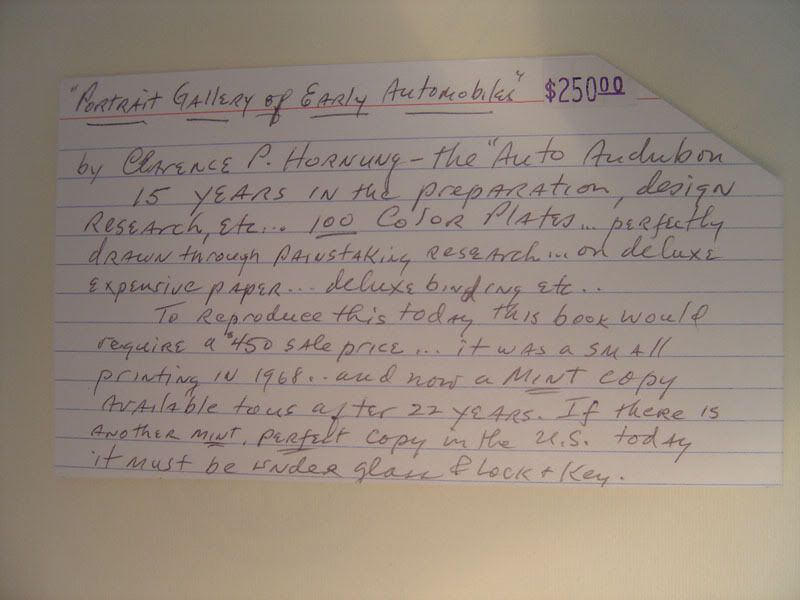 "Portrait Gallery of Early Automobiles" $250.00
by Clarence P. Hornung - the "Auto Audubon
15 years in the preparation, design
research, etc... 100 Color Plates... perfectly
drawn through painstaking research... on deluxe
expensive paper... deluxe binding etc..
To reproduce this today this book would
require a $450 sale price... it was a small
printing in 1968.. and now a MINT copy
available to us after 22 years. If there is
another mint, perfect copy in the U.S. today
it must be under glass & lock + key.